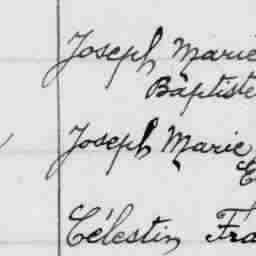 Joseph Marie
Baptiste
Joseph Marie
Célestin Fra